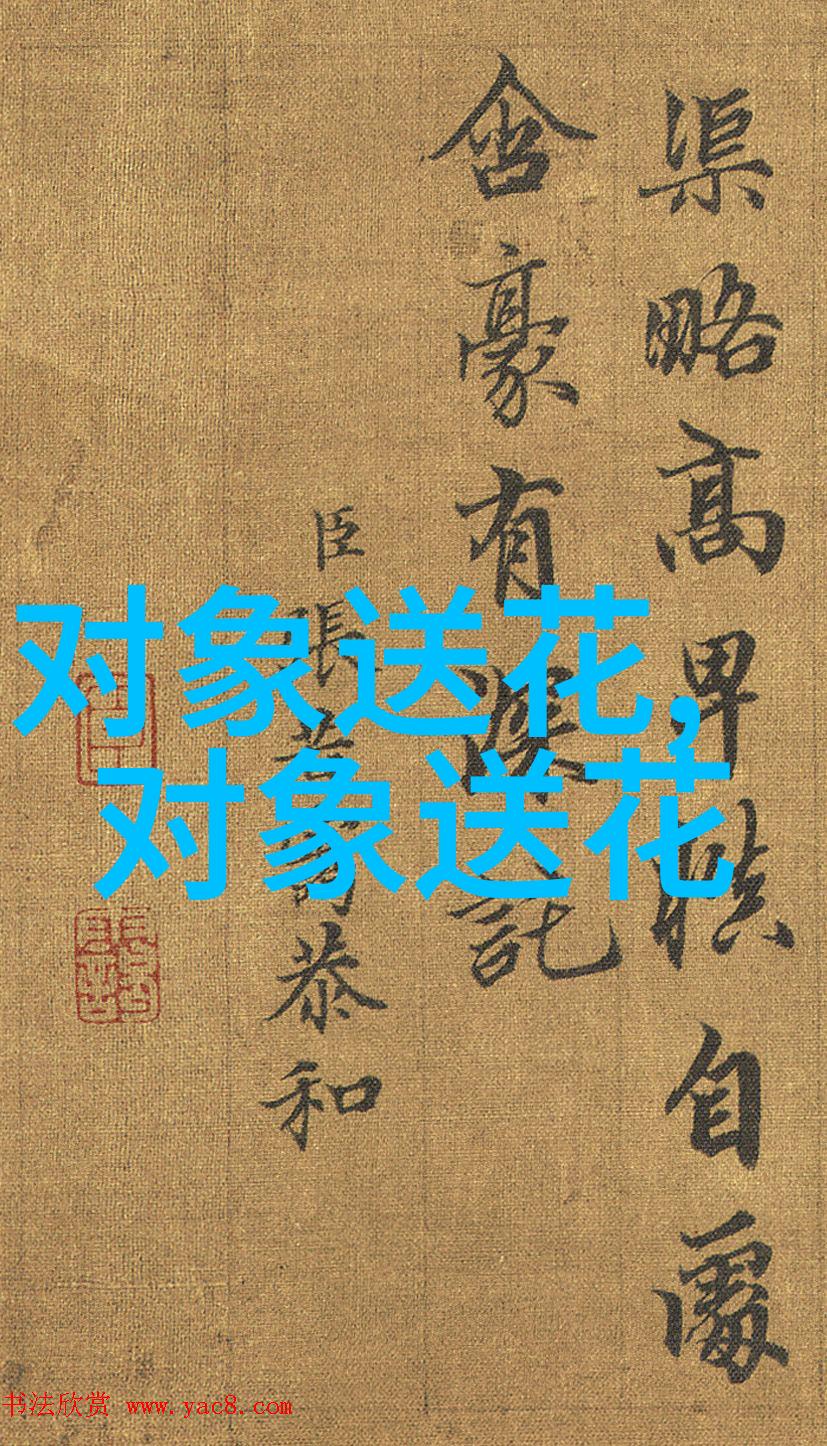 渠略高卑自
含豪有深託
臣張若恭和
对象送花,
对象送花
书法欣赏 www.yac8.com